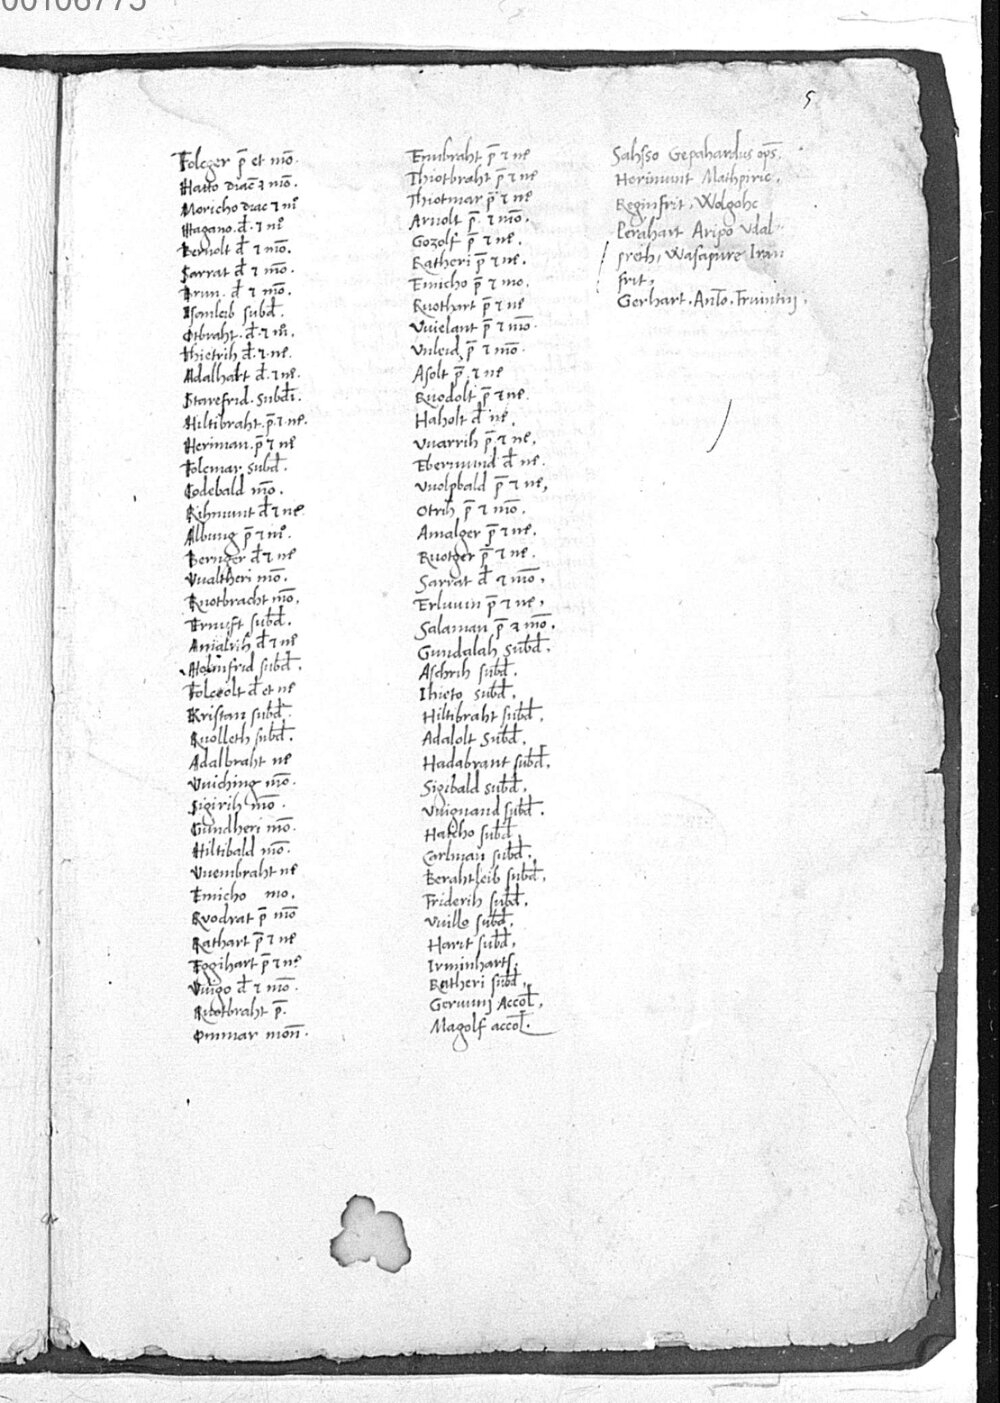 00106773
5
Folcger p̄ et mō.
Hatto diac̄ ⁊ mō.
Moricho diac ⁊ nē
Hagano. đ. ⁊ nē
Bernolt đ ⁊ mō.
Sarrat đ ⁊ mō.
Brun. đ ⁊ mō.
Isanleib subđ.
Otbraht. đ. ⁊ m̄.
Thietrih đ. ⁊. ne.
Adalhart đ. ⁊ ne.
Starefrid. subđi.
Hiltibraht. p̄. ⁊. ne.
Heriman. p̄ ⁊ ne
Folcmar. subđ.
Codebald mō.
Rihmunt đ ⁊ ne.
Albung p̄ ⁊ m̄.
Bernger đ ⁊ ne
Vualtheri mō.
Ruotbracht mō.
Ernust subđ.
Amalrih đ ⁊ ne
Helmfrid subđ.
Folccolt đ et ne
Kristan subđ.
Ruolleth subđ.
Adalbraht ne
Vuiching mō.
Sigirih mō.
Gundheri mō.
Hiltibald mō.
Vuembraht ne
Emicho mo.
Ruodrat p̄ mō
Rathart p̄ ⁊ ne
Eggihart p̄ ⁊ ne
Vuigo đ ⁊ mō.
Ruotbraht p̄.
Ommar mon̄.
Embraht p̄ ⁊ ne
Thiotbraht p̄ ⁊ ne
Thiotmar p̄ ⁊ ne
Arnolt p̄. ⁊ mō.
Gozolf p̄ ⁊ ne.
Ratheri p̄ ⁊ ne.
Emicho p̄ ⁊ mo.
Ruothart p̄ ⁊ ne
Vuielant p̄ ⁊ mō.
p̄ ⁊ mō.
Asolt p̄. ⁊ ne
Ruodolt p̄ ⁊ ne.
Haholt đ ne.
Vuarrih p̄. ⁊ ne.
Ebermund đ ne.
Vuolpbald p̄ ⁊ ne,
Otrih p̄ ⁊ mō.
Amalger p̄ ⁊ ne.
Ruotger p̄ ⁊ ne.
Sarrat đ ⁊ mō,
Erluuin p̄ ⁊ ne,
Salaman p̄ ⁊ mō.
Gundalah subđ.
Aschrih subđ.
Thieto subđ.
Hiltibraht subđ.
Adalolt subđ.
Hadabrant subđ.
Sigibald subđ.
Vuignand subđ.
Hatcho subđ.
Carlman subđ.
Berahtleib subđ.
Friderih subđ.
Vuillo subđ.
Harit subđ.
Irminhart s.
Ratheri subđ.
Geruuuj Accol̄.
Magolf accol̄.
Sahsso Gepahardus ops.
Herimunt Mathpiric.
Reginfrit. Wolgohc
Perahart Aripo Vdal
preth, Wasapure Iran
frit,
Gerhart. Anto. Fruintin.